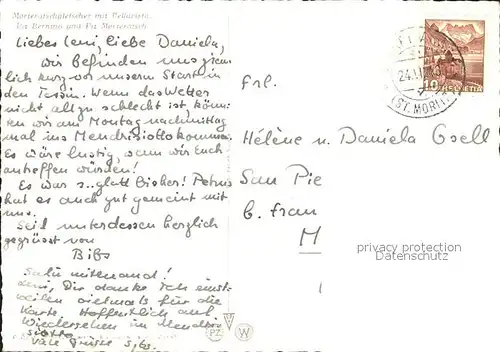 Morteratschgletscher mit Bellavista,
Piz Bernina und Piz Morteratsch
Liebes Leni, liebe Daniela,
wir befinden uns ziem
lich kurz vor unserm Start in
den Tessin. Wenn das Wetter
nicht allzu schlecht ist kön-
nen wir am Montag nachmittag
mal ins Mendrisiotto kommen.
Es wäre lustig, wenn wir Euch
antreffen würden!
Es war s..glatt bisher! Petrus
hat es auch gut gemeint mit
uns.
Seid unterdessen herzlich
gegrüsst von
Bibs
Salü mitenand!
Leni, Dir danke ich einst-
weilen vielmals für die
Karte. Hoffentlich auf
Wiedersehen im Mendri
siotto
Viele Grüsse
Frl.
Hélène u. Daniela Gsell
San Pie
b. Frau
M
HELVETIA
10
24.II
ST. MORITZ
privacy protection
Datenschutz
PZ
W